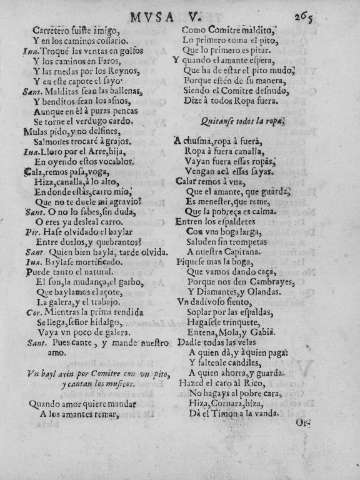 MVSA V. 265
Carretero fuiste amigo,
Y en los caminos cosario.
Ina. Troquè las ventas en golfos
Y los caminos en Faros,
Y las ruedas por los Reynos,
Y eu este capote el sayo.
Sant. Malditas sean las ballenas,
Y benditos sean los asnos,
Aunque en èl à puras pencas
Se torne el verdugo cardo.
Mulas pido, y no delfines,
Salmones trocarè à grajos.
Ina. Lloro por el Arre, hija,
En oyendo estos vocablos.
Cala, remos pasa, voga,
Hiza, canalla, à lo alto,
En donde estàs, carro mio,
Que no te duele mi agravio?
Sant. O no lo sabes, sin duda,
O eres ya desleal carro.
Pir. Hase olvidado el baylar
Entre duelos, y quebrantos?
Sant Quien bien bayla, tarde olvida.
Ina. Baylase mortificado.
Puede tanto el natural.
El son, la mudança, el garbo,
Que baylamos el açote,
La galera, y el trabajo.
Cor. Mientras la prima rendida
Se llega, señor hidalgo,
Vaya vn poco de galera.
Sant. Pues cante, y mande nuestro
amo.
Vn bayl avin por Comitre con vn pito,
y cantan los musicos.
Quando amor quiere mandar
A los amantes remar,
Como Comitre maldito,
Lo primero toma el pito,
Que lo primero es pitar.
Y quando el amante espera,
Que ha de estar el pito mudo,
Porque estèo de su manera,
Siendo el Comitre desnudo,
Dize à todos Ropa fuera.
Quitanse todos la ropa.
A chusma, ropa à fuera,
Ropa à fuera canalla,
Vayan fuera essas ropas,
Vengan acà essas sayas.
Calar remos à vna,
Que el amante, que guarda,
Es menester, que reme,
Que la pobreça es calma.
Entren los espaldetes
Con vno boga larga,
Saluden sin trompetas
A nuestra Capitana.
Piquese mas la boga,
Que vamos dando caça,
Porque nos den Cambrayes,
Y Dismantes, y Olandas.
Vn dadivoso siento,
Soplar por las espaldas,
Hagasele trinquete,
Entena, Mola, y Gabia.
Dadle todas las velas
A quien dà, y à quien paga:
Y faltenle candiles,
A quien ahorra, y guarda.
Hazed el caro al Rico,
No hagays al pobre cara,
Hiza, Cornara, hiza,
Dà el Timon a la vanda.